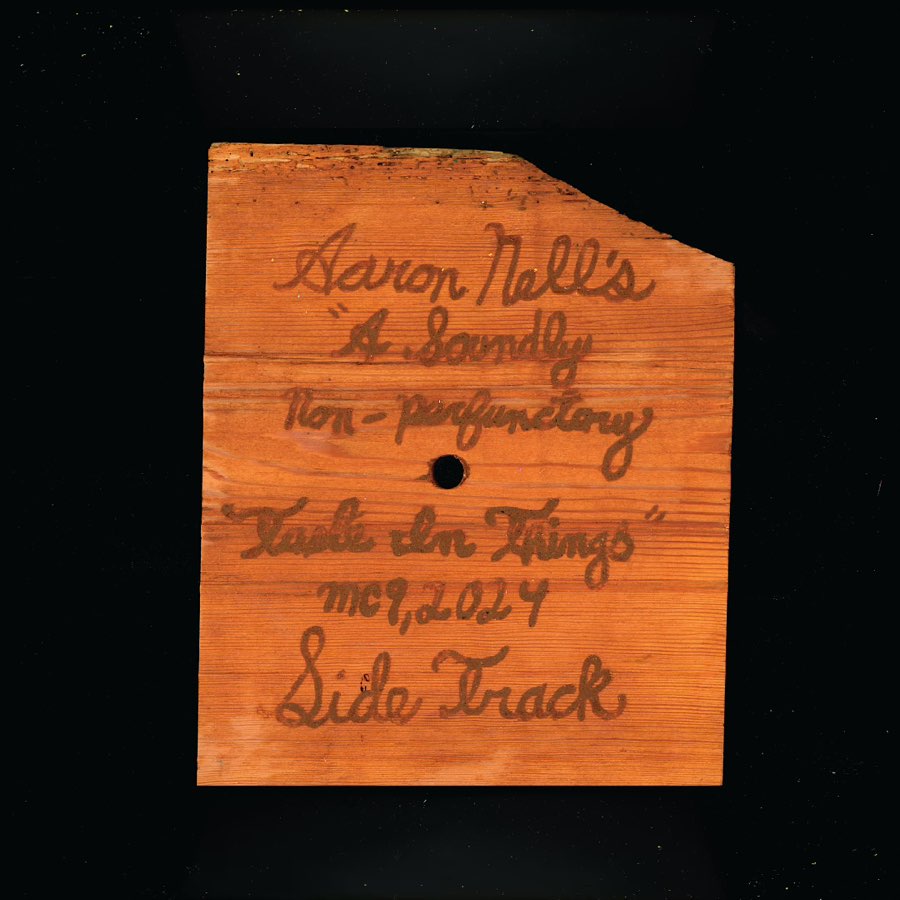 Aaron Nell's
"A Soundly
Non-perfunctory
"Taste In Things"
mc9,2024
Side Track